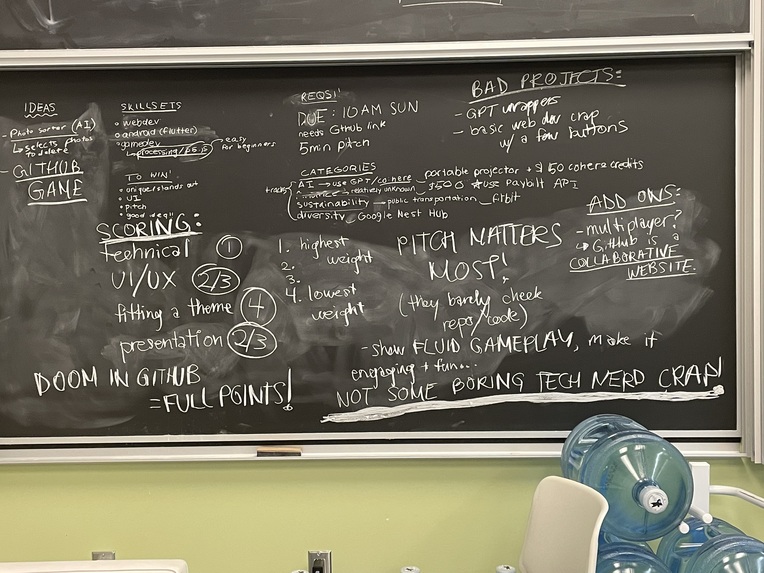 IDEAS
- Photo sorter (AI)
↳ selects photos to delete
- GITHUB
GAME
SKILLSETS
• webdev
• android (flutter)
• gamedev
↳ processing/p5.js → easy for beginners
TO WIN!
• unique/stands out
• UI
• pitch
• good deq!!
REQS!
DUE: 10AM SUN
needs Gthub link
5min pitch
CATEGORIES
tracks
AI → use GPT/cohere _ portable projector + $150 cohere credits
→ relatively unknown _ $500 ★use Paybilt API
sustainability → public transportation _ fitbit
diversity _ Google Nest Hub
BAD PROJECTS:
- GPT wrappers
- basic web dev crap
w/ a few buttons
ADD ONS:
- multiplayer?
↳ GitHub is a
COLLABORATIVE
WEBSITE.
SCORING:
technical 1
UI/UX 2/3
fitting a theme 4
presentation 2/3
1. highest
weight
2.
3.
4. lowest
weight
PITCH MATTERS
MOST!
(they barely check
repo/code)
- show FLUID GAMEPLAY, make it
engaging + fun...
NOT SOME BORING TECH NERD CRAP!
DOOM IN GITHUB
= FULL POINTS!